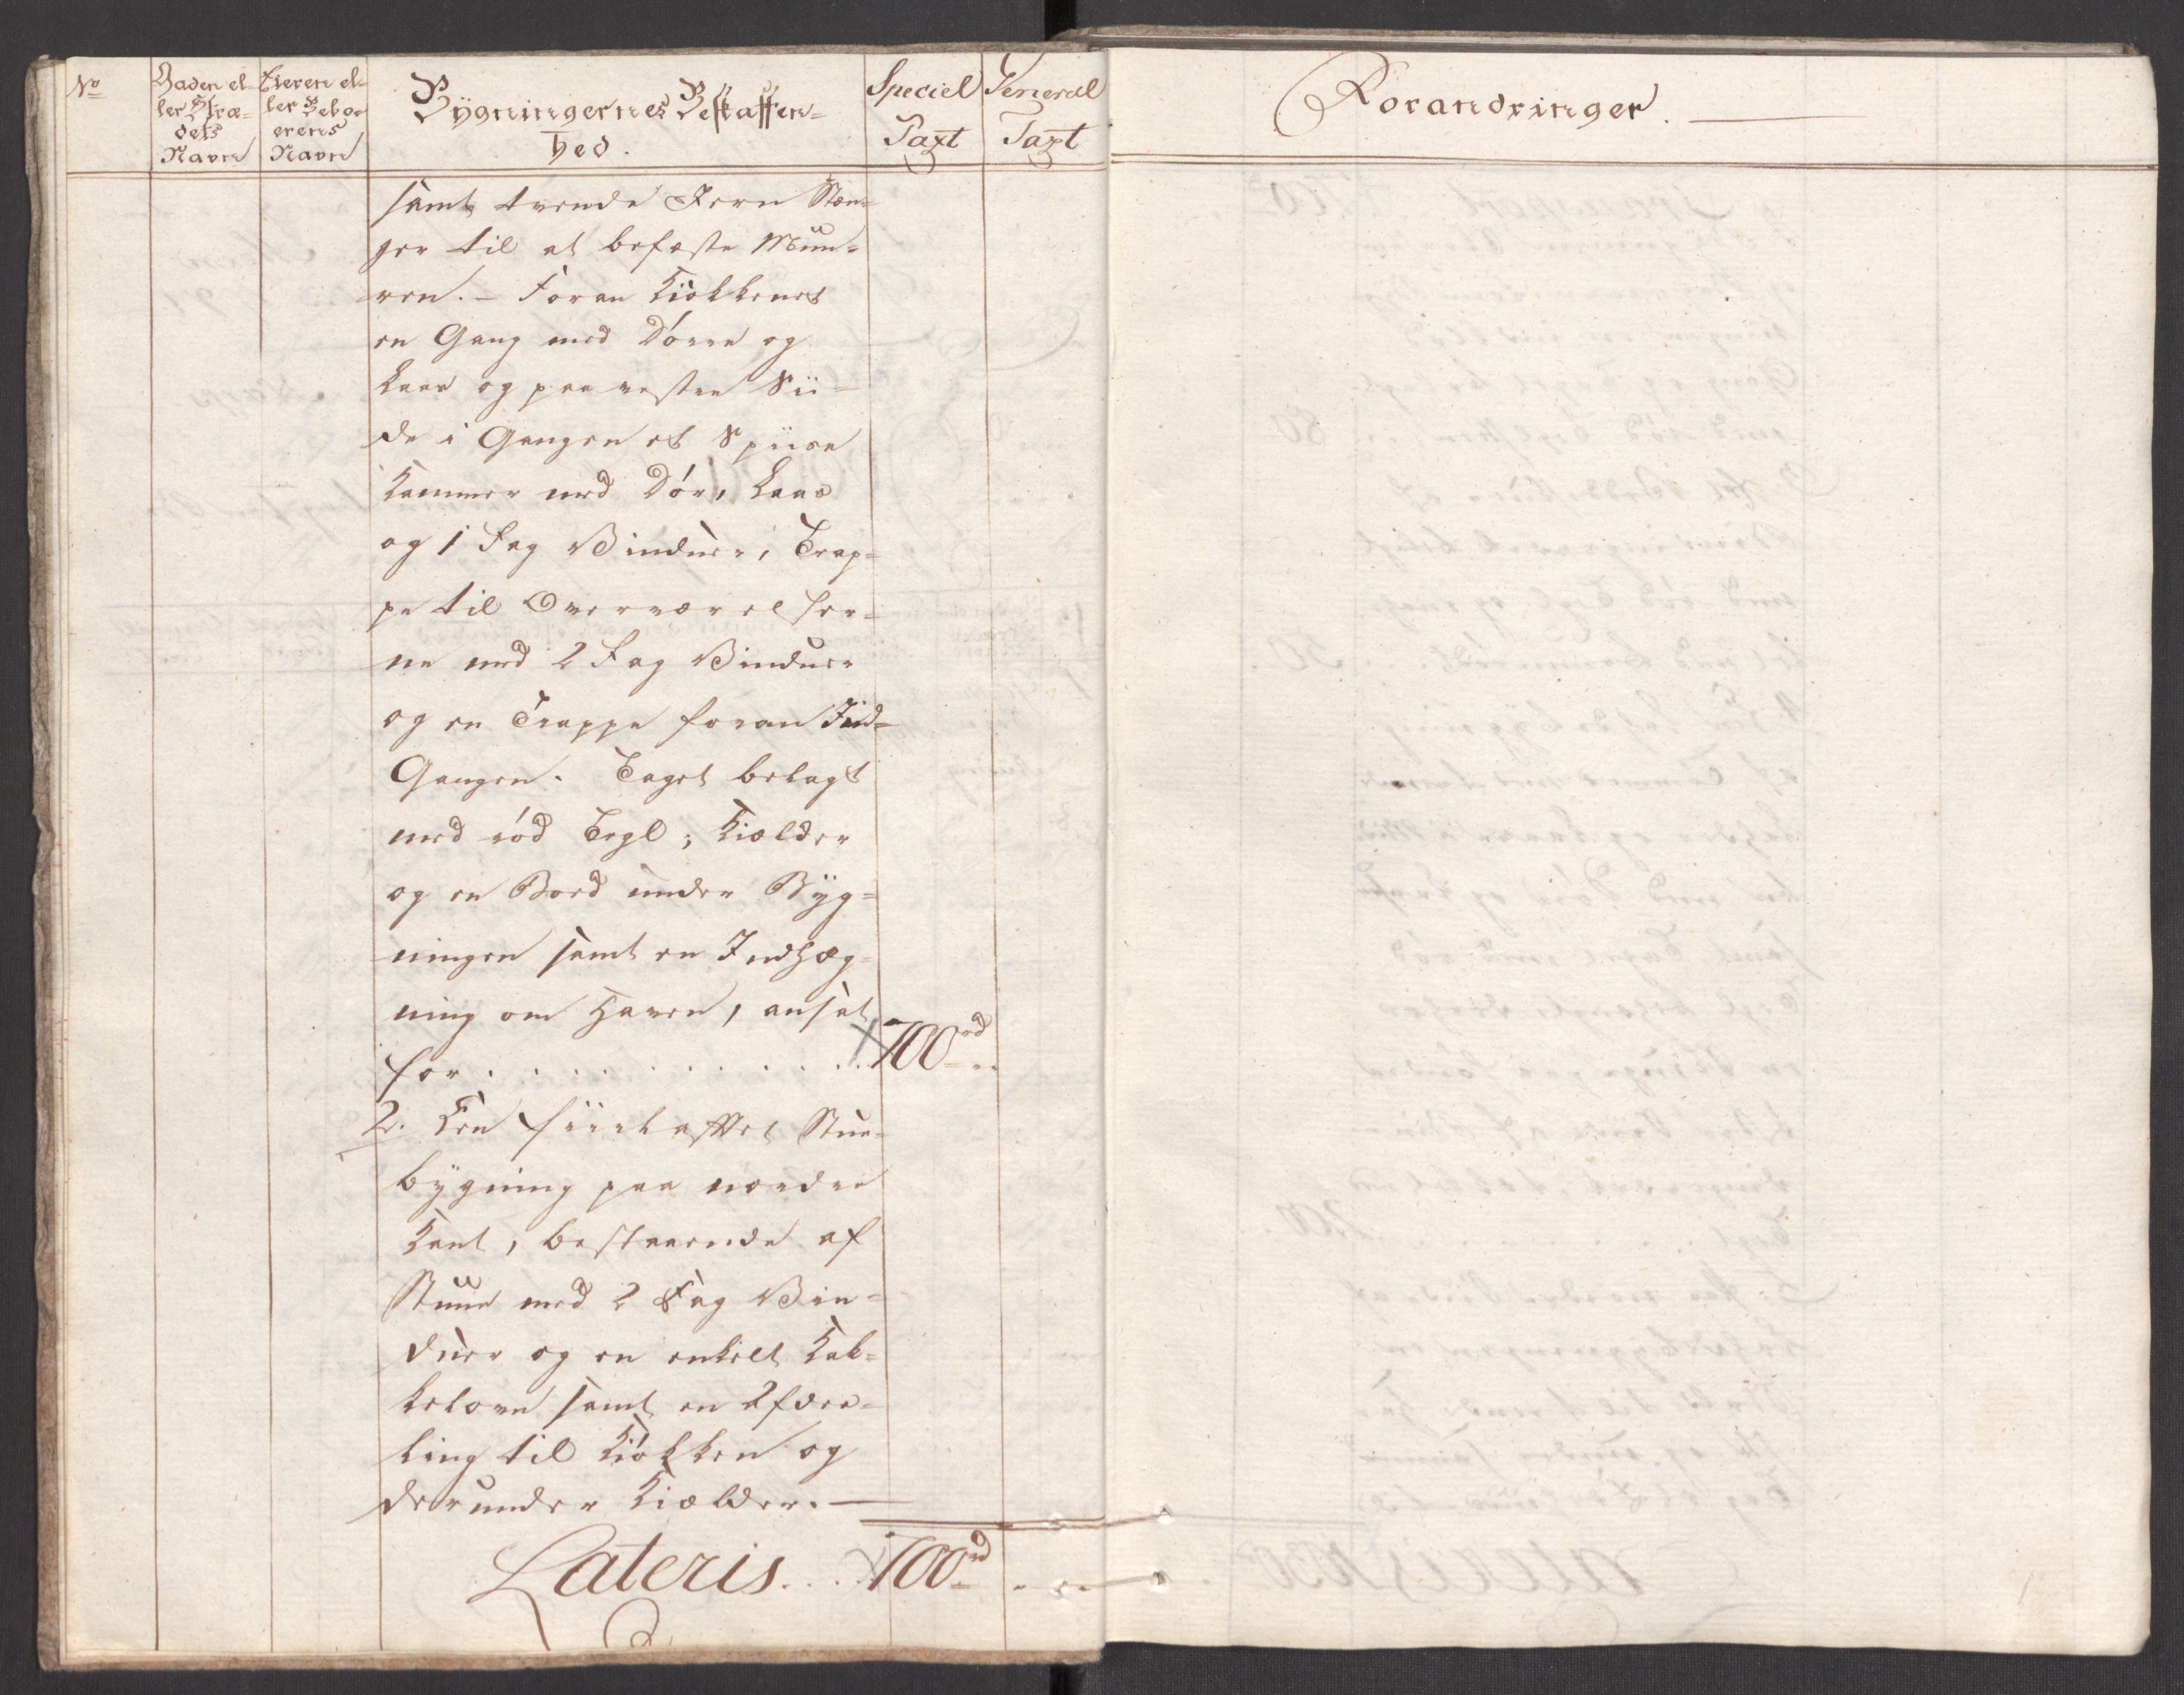 No
Gaden el-
ler Stræ-
dets
Navn
Eieren el-
ler Beboe-
erens
Navn
Bÿgningernes Beskaffen=
hed.
Speciel
Taxt
General
Taxt
Forandringer.
samt tvende Jern Stæn=
ger til at befæste Muu=
ren. – Foran Kiökkenet
en Gang med Dörre og
Laas og paa vestre Sii=
de i Gangen et Spiise
Kammer med Dör, Laas
og 1 Fag Vinduer, Trap=
pe til Overværelser=
ne med 2 Fag Vinduer
og en Trappe foran Ind=
Gangen. Taget belagt
med röd Tegl; Kielder
og en Boed under Bÿg=
ningen samt en Indhæg=
ning om Haven, ansat
for . . . . . . . . . . 700rd
2. Een Fiirkasttet Stue=
bÿgning paa nordre
Kant, bestaaende af
Stuue med 2 Fag Vin=
duer og en enkelt Kak=
kelovn samt en Afdee=
ling til Kiökken og
derunder Kielder. —
Lateris . . . 700rd